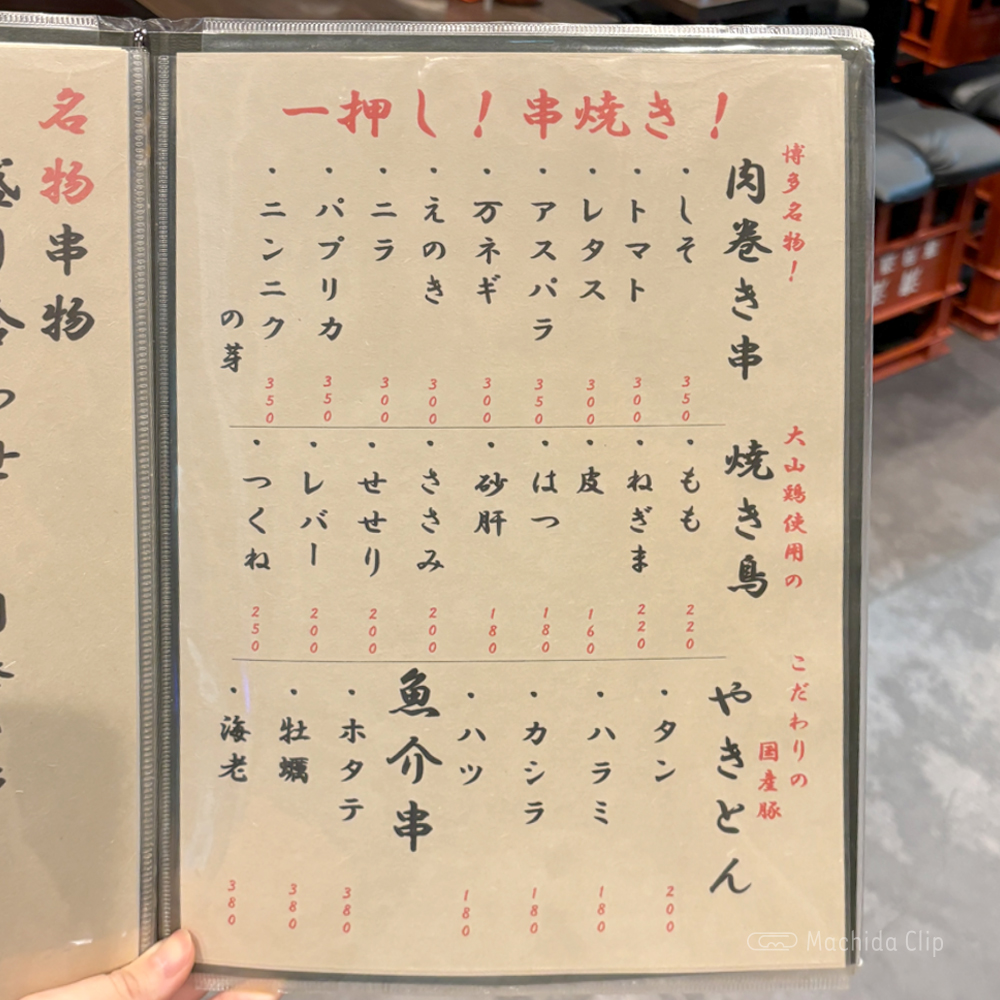 一押し!串焼き!
博多名物!
肉巻き串
・しそ 350
・トマト 300
・レタス 300
・アスパラ 350
・万ネギ 300
・えのき 300
・ニラ 300
・パプリカ 350
・ニンニクの芽 350
大山鶏使用の
焼き鳥
・もも 220
・ねぎま 220
・皮 160
・はつ 180
・砂肝 180
・ささみ 200
・せせり 200
・レバー 200
・つくね 250
こだわりの
国産豚
やきとん
・タン 200
・ハラミ 180
・カシラ 180
・ハツ 180
魚介串
・ホタテ 380
・牡蠣 380
・海老 380
名物串物
Machida Clip